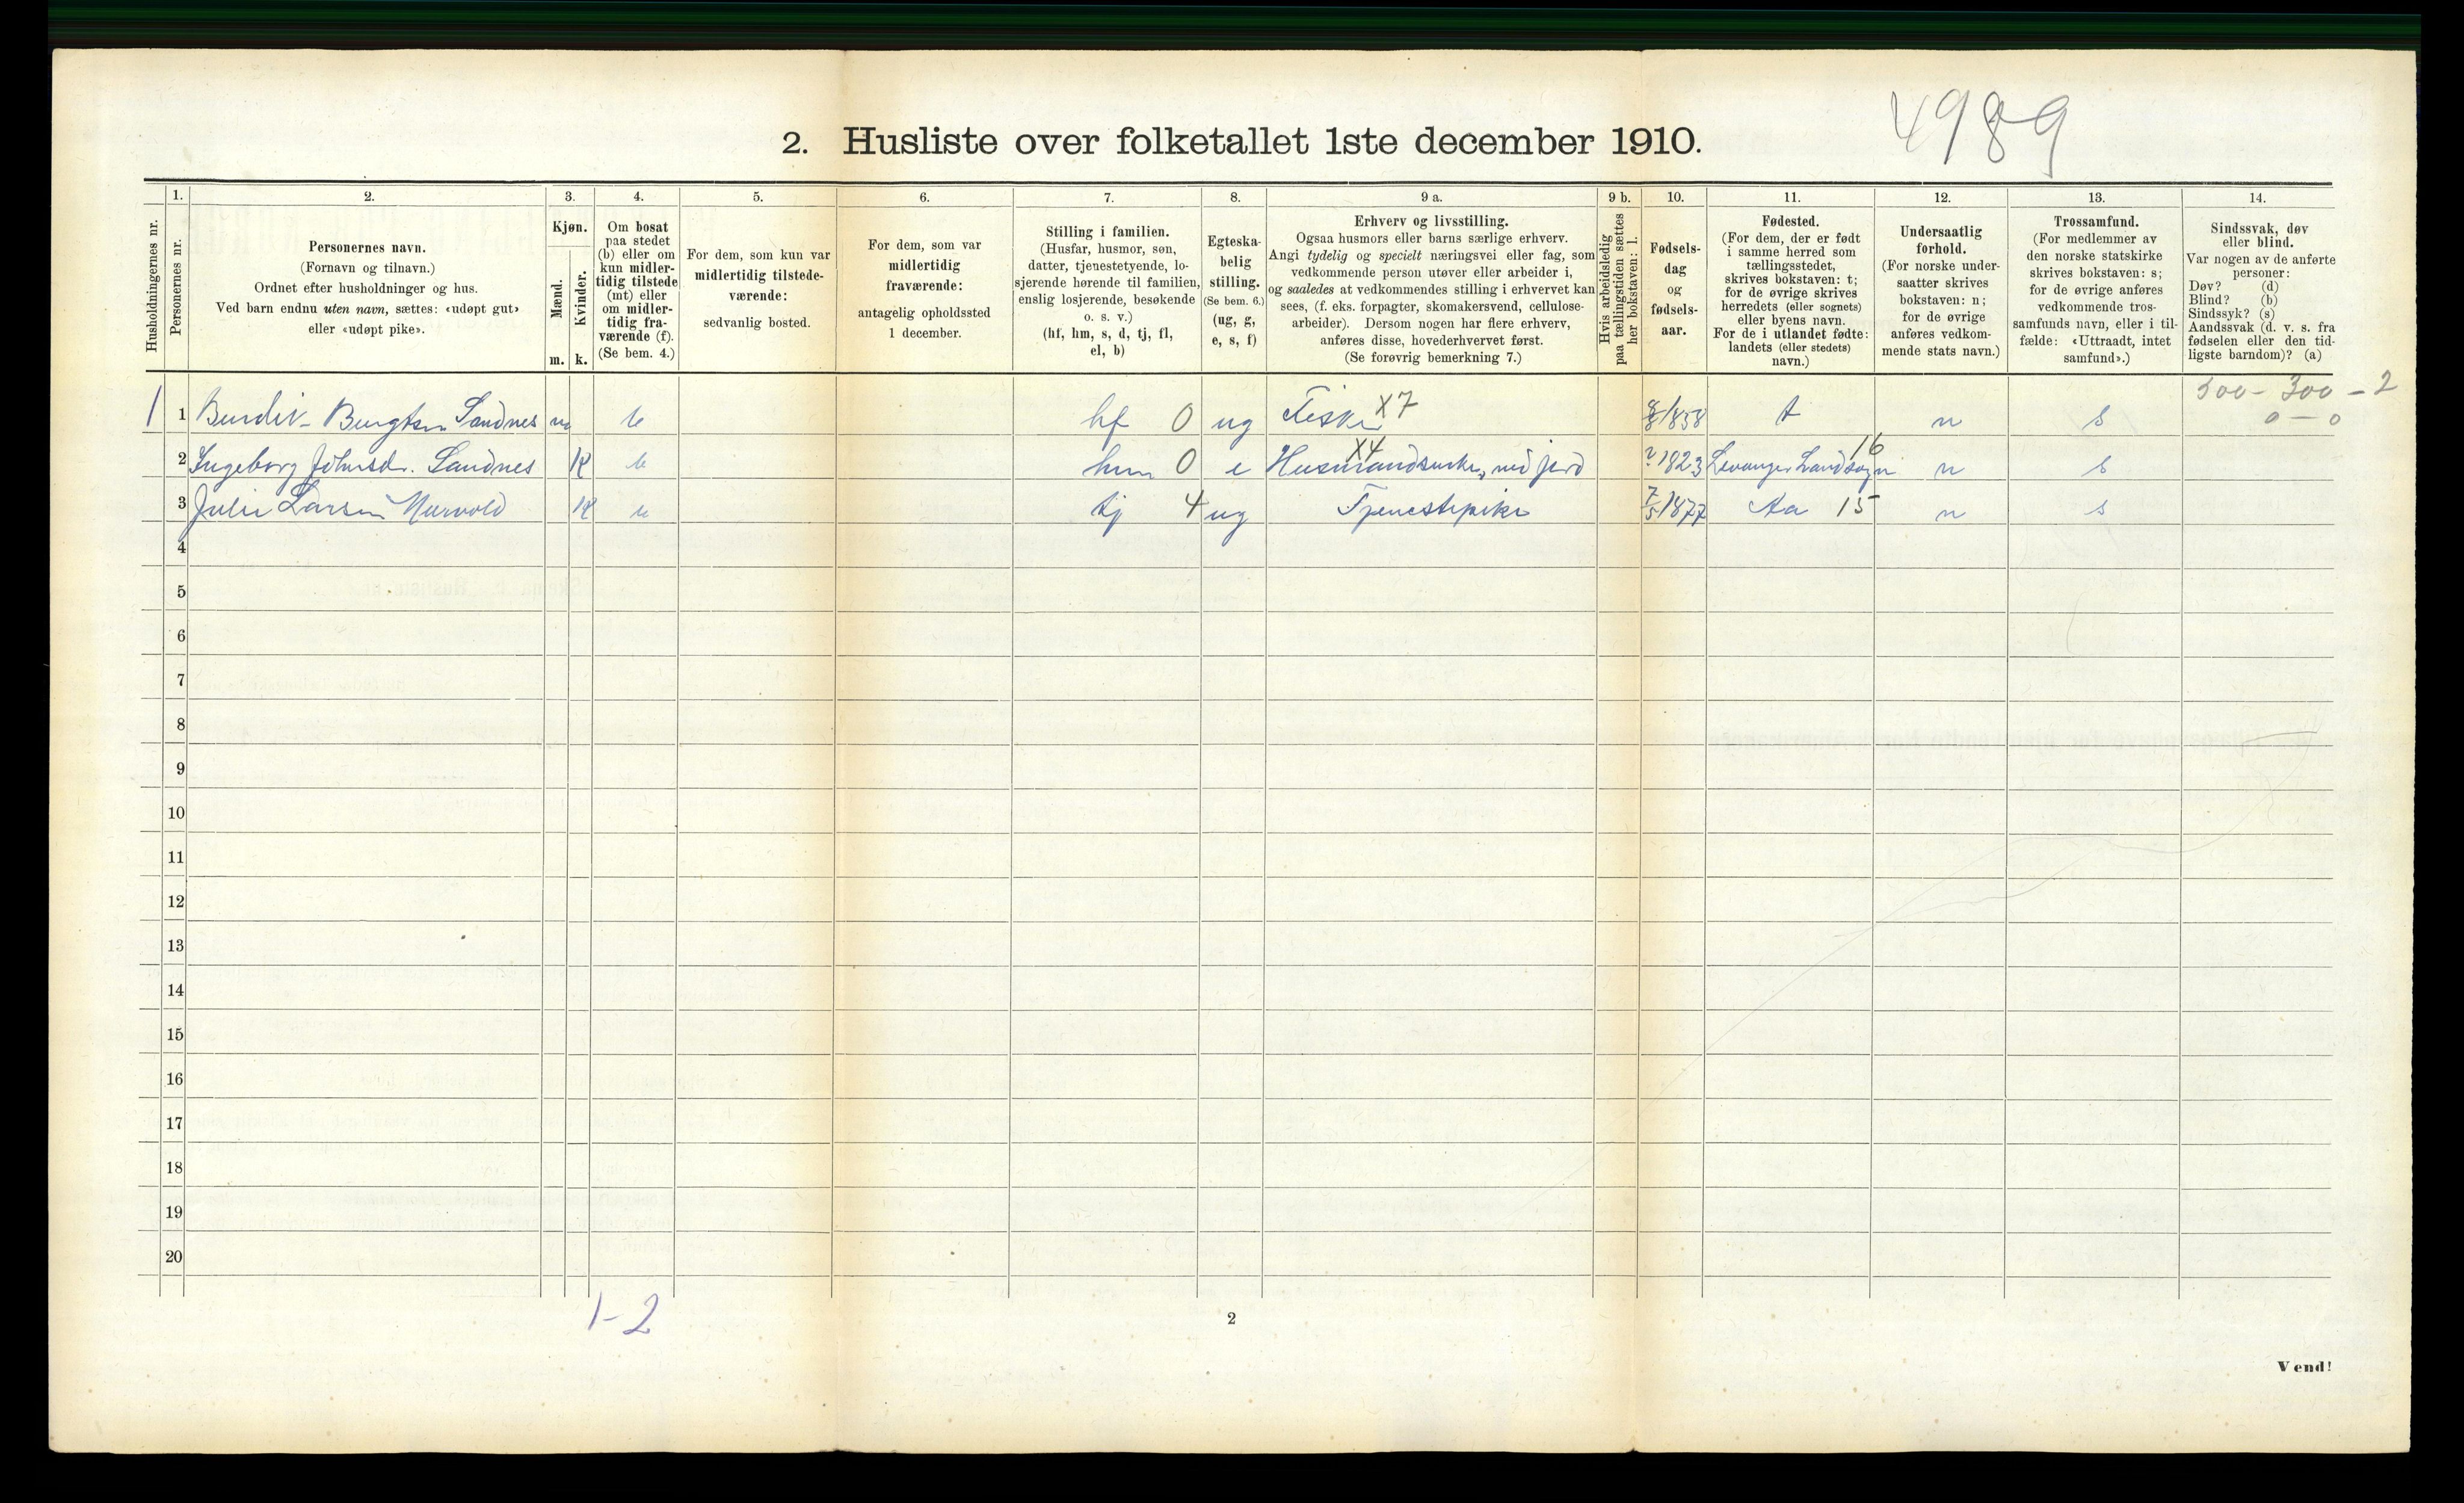 4989
2. Husliste over folketallet 1ste december 1910.
Husholdningernes nr.
1.
Personernes nr.
2.
Personernes navn.
(Fornavn og tilnavn.)
Ordnet efter husholdninger og hus.
Ved barn endnu uten navn, sættes: «udøpt gut»
eller «udøpt pike».
3.
Kjøn.
Mænd.
Kvinder.
m. k.
4.
Om bosat
paa stedet
(b) eller om
kun midler-
tidig tilstede
(mt) eller
om midler-
tidig fra-
værende (f).
(Se bem. 4.)
5.
For dem, som kun var
midlertidig tilstede-
værende:
sedvanlig bosted.
6.
For dem, som var
midlertidig
fraværende:
antagelig opholdssted
1 december.
7.
Stilling i familien.
(Husfar, husmor, søn,
datter, tjenestetyende, lo-
sjerende hørende til familien,
enslig losjerende, besøkende
o. s. v.)
(hf, hm, s, d, tj, fl,
el, b)
8.
Egteska-
belig
stilling.
(Se bem. 6.)
(ug, g,
e, s, f)
9 a.
Erhverv og livsstilling.
Ogsaa husmors eller barns særlige erhverv.
Angi tydelig og specielt næringsvei eller fag, som
vedkommende person utøver eller arbeider i,
og saaledes at vedkommendes stilling i erhvervet kan
sees, (f. eks. forpagter, skomakersvend, cellulose-
arbeider). Dersom nogen har flere erhverv,
anføres disse, hovederhvervet først.
(Se forøvrig bemerkning 7.)
9 b.
Hvis arbeidsledig
paa tællingstiden sættes
her bokstaven: l.
10.
Fødsels-
dag
og
fødsels-
aar.
11.
Fødested.
(For dem, der er født
i samme herred som
tællingsstedet,
skrives bokstaven: t;
for de øvrige skrives
herredets (eller sognets)
eller byens navn.
For de i utlandet fødte:
landets (eller stedets)
navn.)
12.
Undersaatlig
forhold.
(For norske under-
saatter skrives
bokstaven: n;
for de øvrige
anføres vedkom-
mende stats navn.)
13.
Trossamfund.
(For medlemmer av
den norske statskirke
skrives bokstaven: s;
for de øvrige anføres
vedkommende tros-
samfunds navn, eller i til-
fælde: «Uttraadt, intet
samfund».)
14.
Sindssvak, døv
eller blind.
Var nogen av de anførte
personer:
Døv? (d)
Blind? (b)
Sindssyk? (s)
Aandssvak (d. v. s. fra
fødselen eller den tid-
ligste barndom)? (a)
300 - 2
0 - 0
1 1 Sandnes m b hf 0 ug Fisker X7 8/8 1858 t n s
2 Ingeborg Johnsd. Sandnes K b hm 0 e X4 med jord 1823 Levanger Landsogn 16 n s
3 Julie Larsen K b tj 4 ug Tjenestepike 7/5 1877 Aa 15 n s
4
5
6
7
8
9
10
11
12
13
14
15
16
17
18
19
20
1-2
2
Vend!